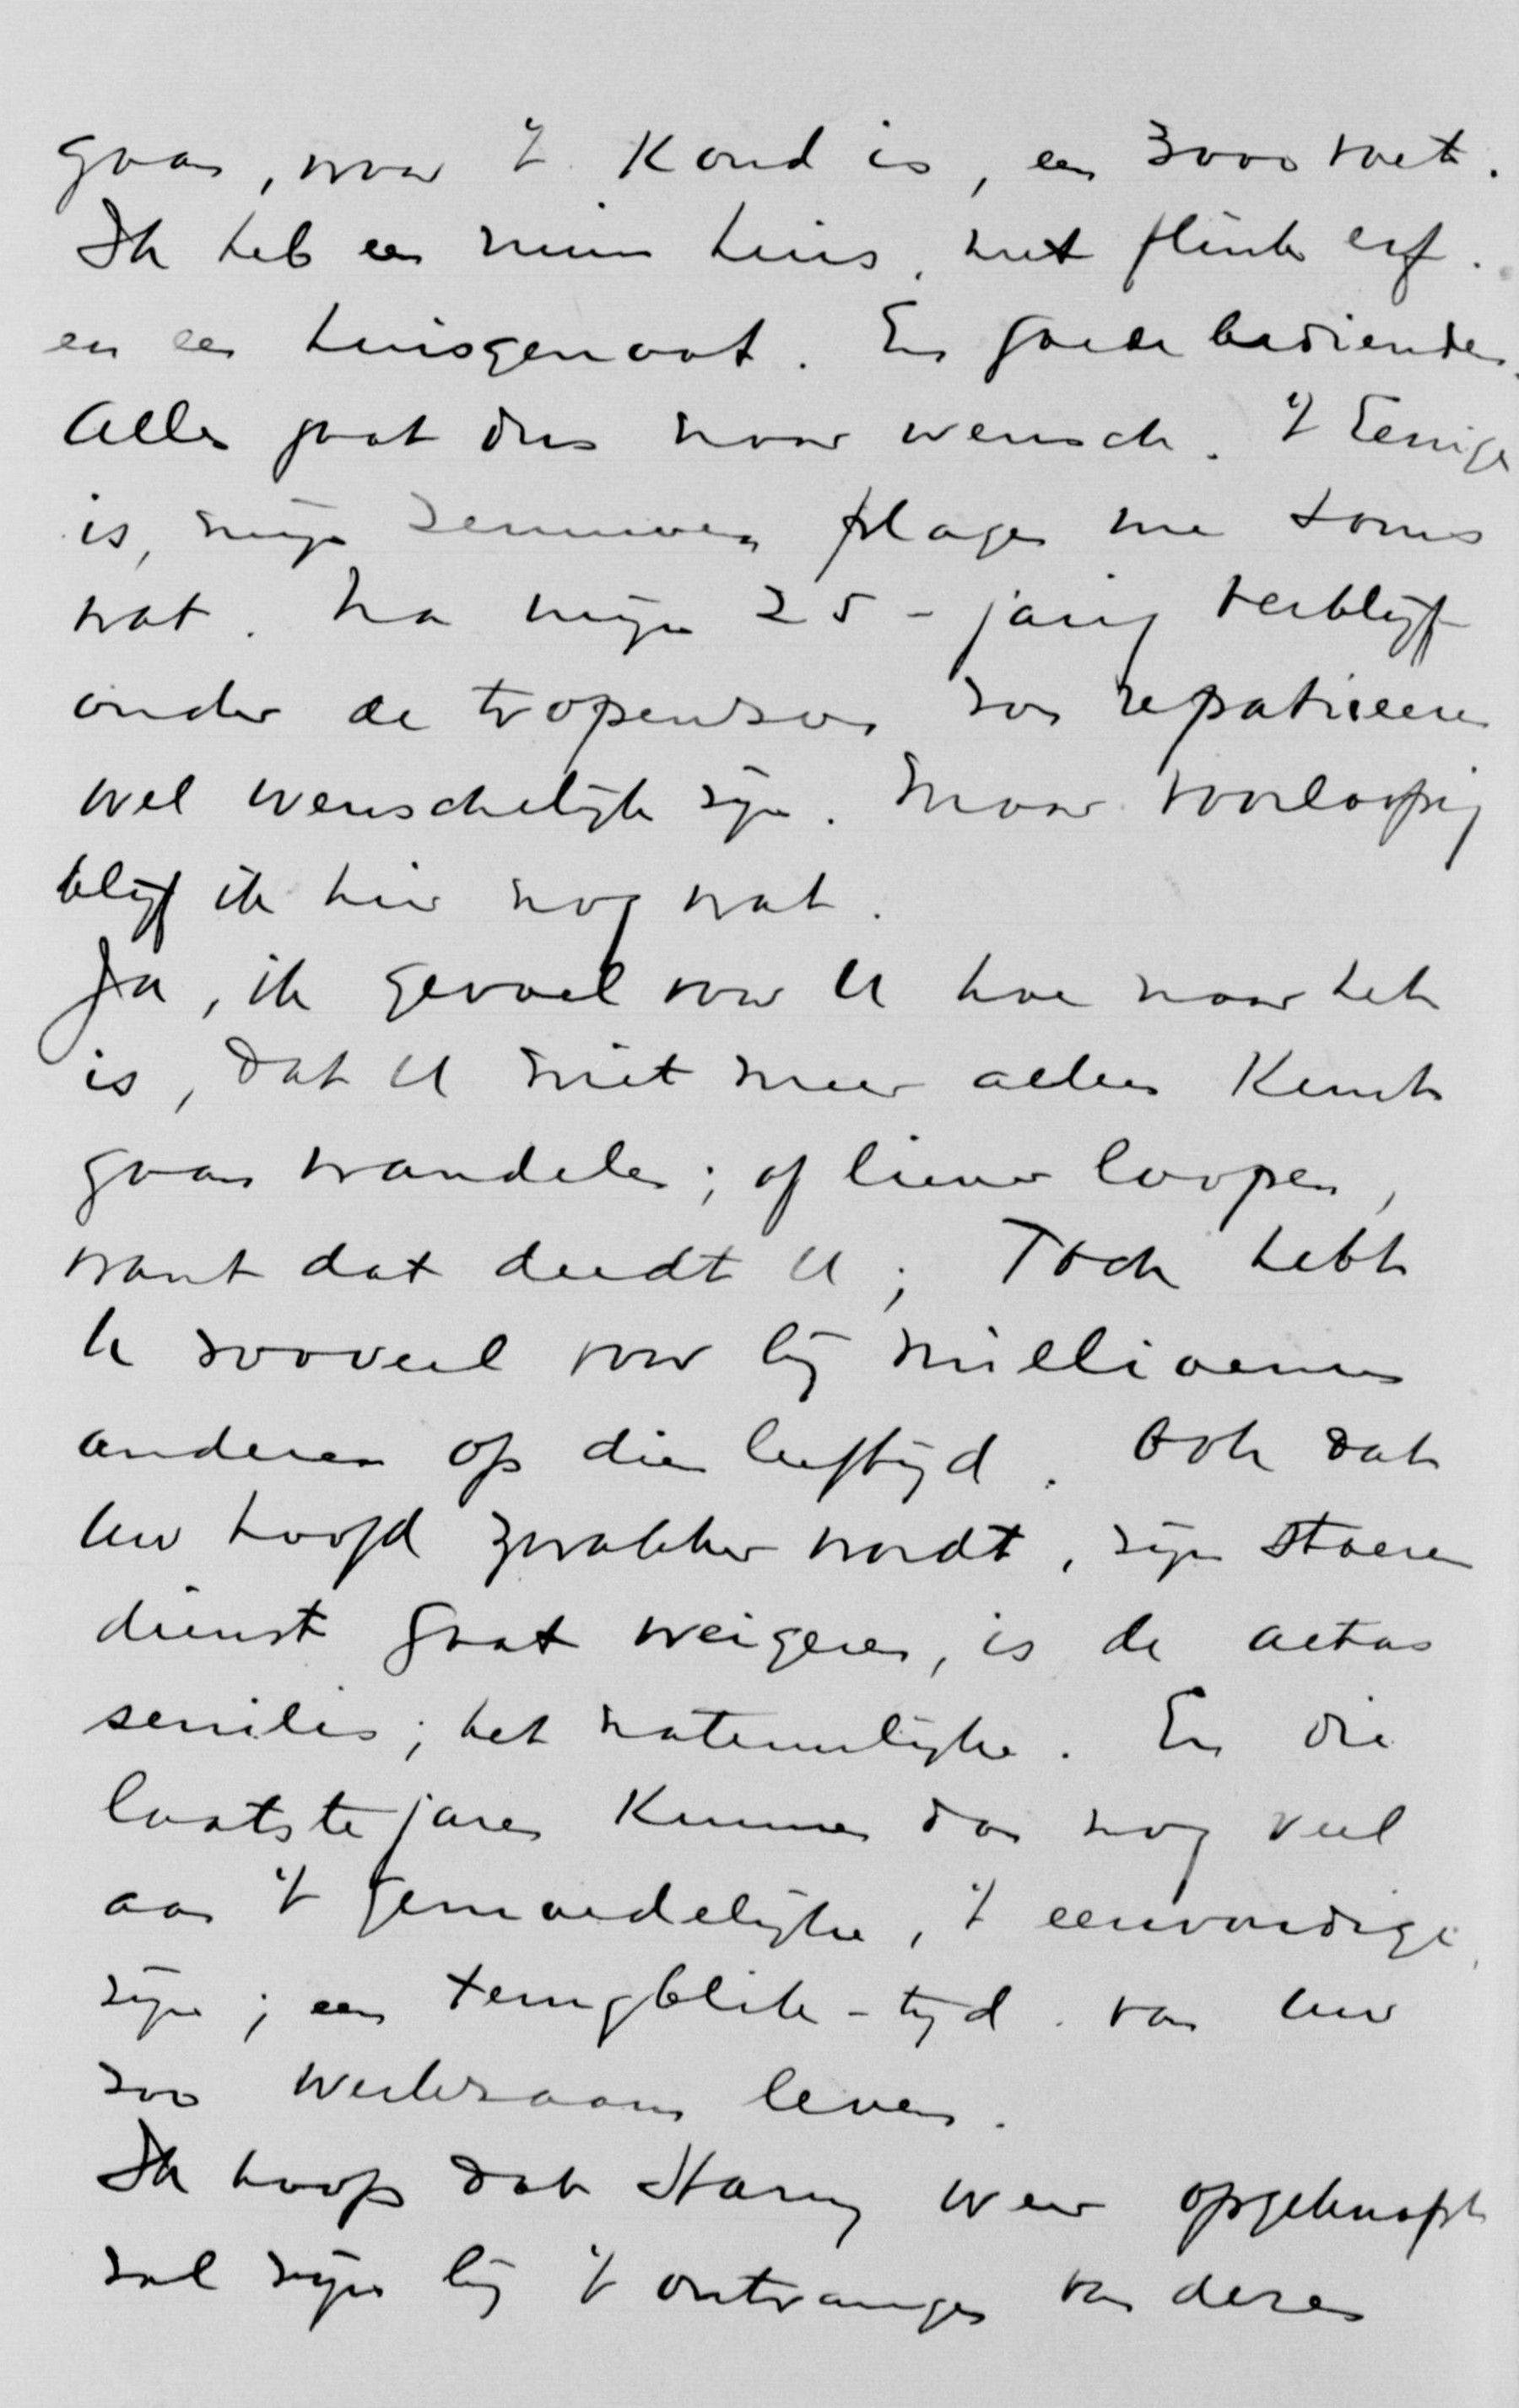 gaan, waar 't koud is, en 3000 voet.
Ik heb een ruim huis, met flink erf.
en een huisgenoot. En goede bedienden.
Alles gaat dus naar wensch. 't Eenige
is, mijn zenuwen plagen me soms
wat. Na mijn 25-jarig verblijf
onder de tropenzon zou repatrieeren
wel wenschelijk zijn. Maar voorloopig
blijf ik hier nog wat.
Ja, ik gevoel voor U hoe naar het
is, dat U niet meer alleen kunt
gaan wandelen; of liever loopen,
want dat deedt U; Toch hebt
U zooveel voor bij millioenen
anderen op dien leeftijd. Ook dat
Uw hoofd zwakker wordt, zijn stoere
dienst gaat weigeren, is de aetas
senilis; het natuurlijke. En die
laatste jaren kunnen dan nog veel
aan 't gemoedelijke, 't eenvoudige
zijn; een terugblik-tijd van Uw
zoo werkzaam leven.
Ik hoop dat Harry weer opgeknapt
zal zijn bij 't ontvangen van dezen